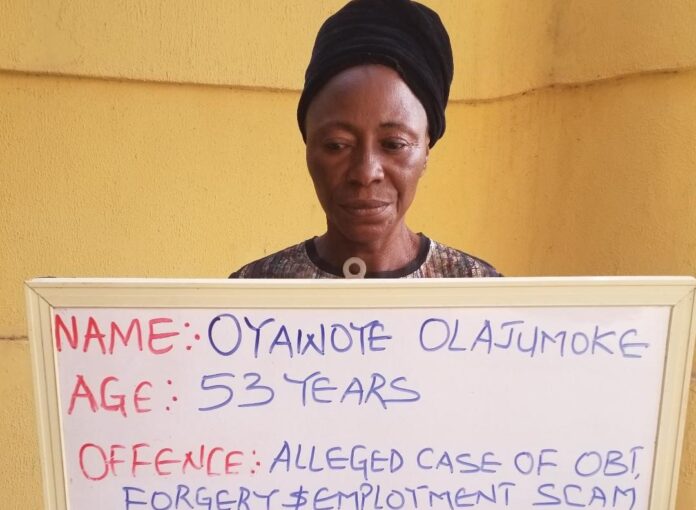 NAME:- OYAWOYE OLAJUMOKE
AGE: 53 YEARS
OFFENCE: ALLEGED CASE OF OBT,
FORGERY $ EMPLOTMENT SCAM